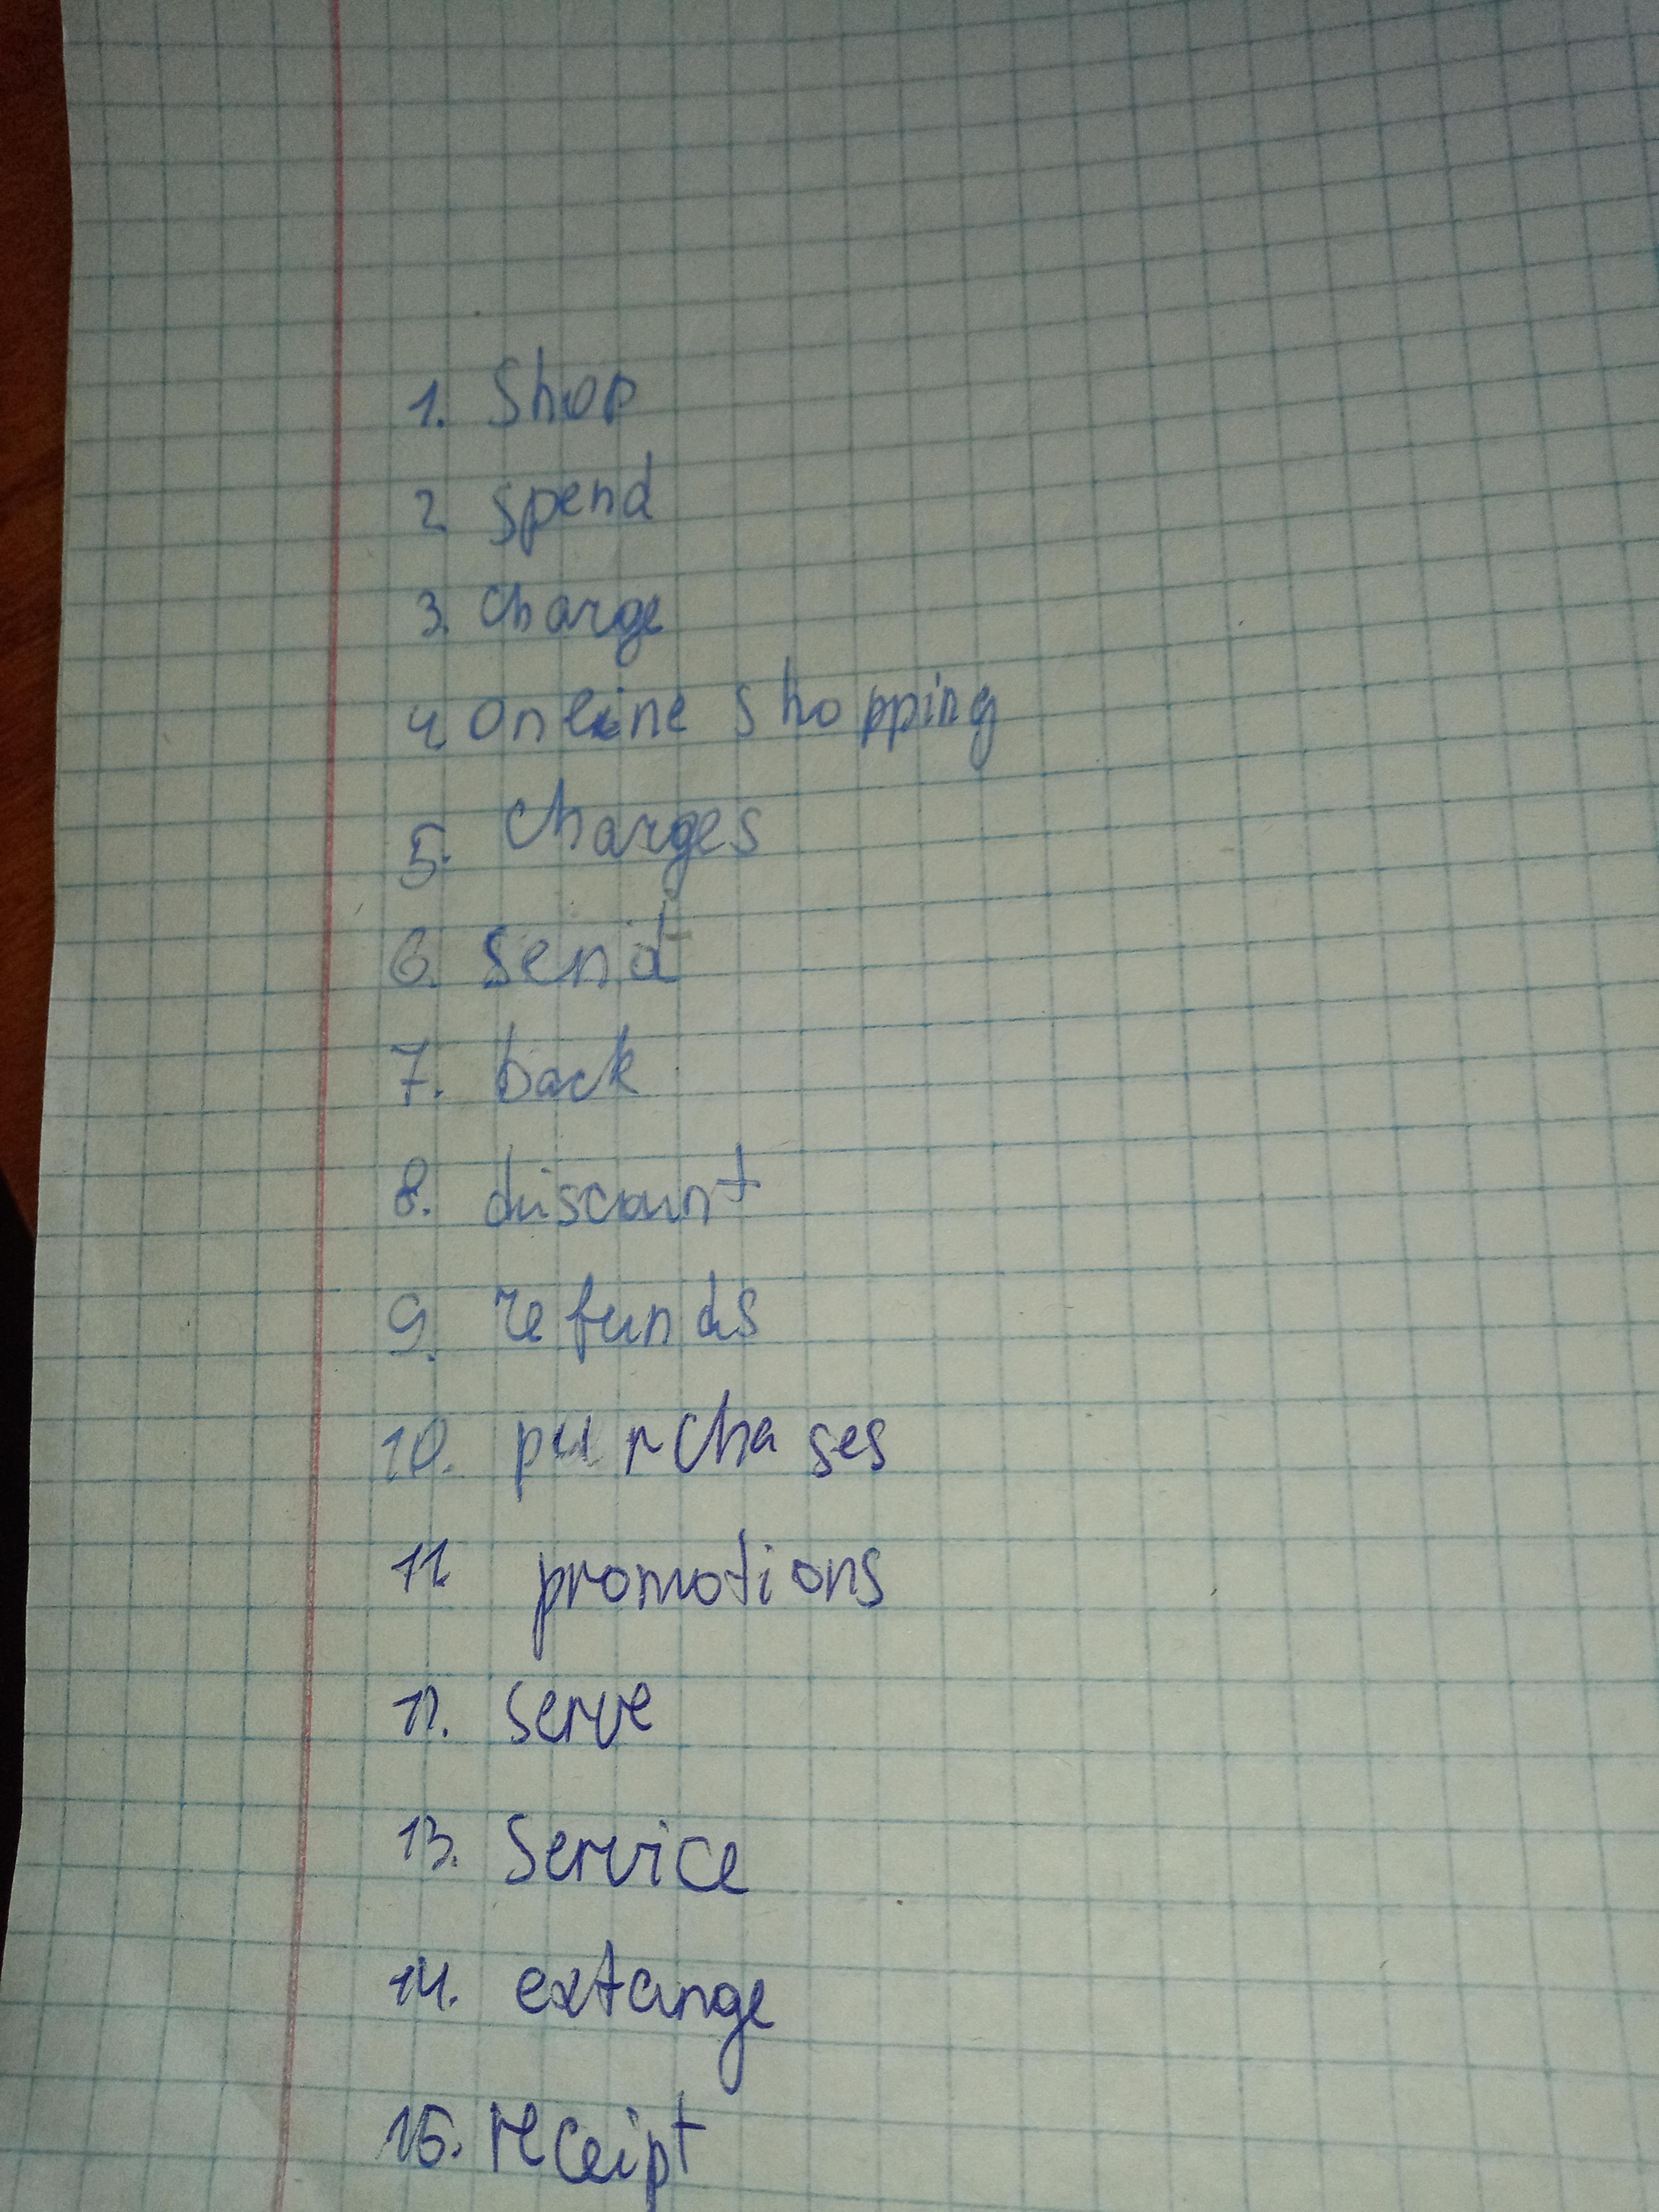 1. Shop
2 spend
3. charge
4 online shopping
5. charges
6. send
7. back
8. discount
9. refunds
10. purchases
11. promotions
12. serve
13. Service
14. extange
15. receipt